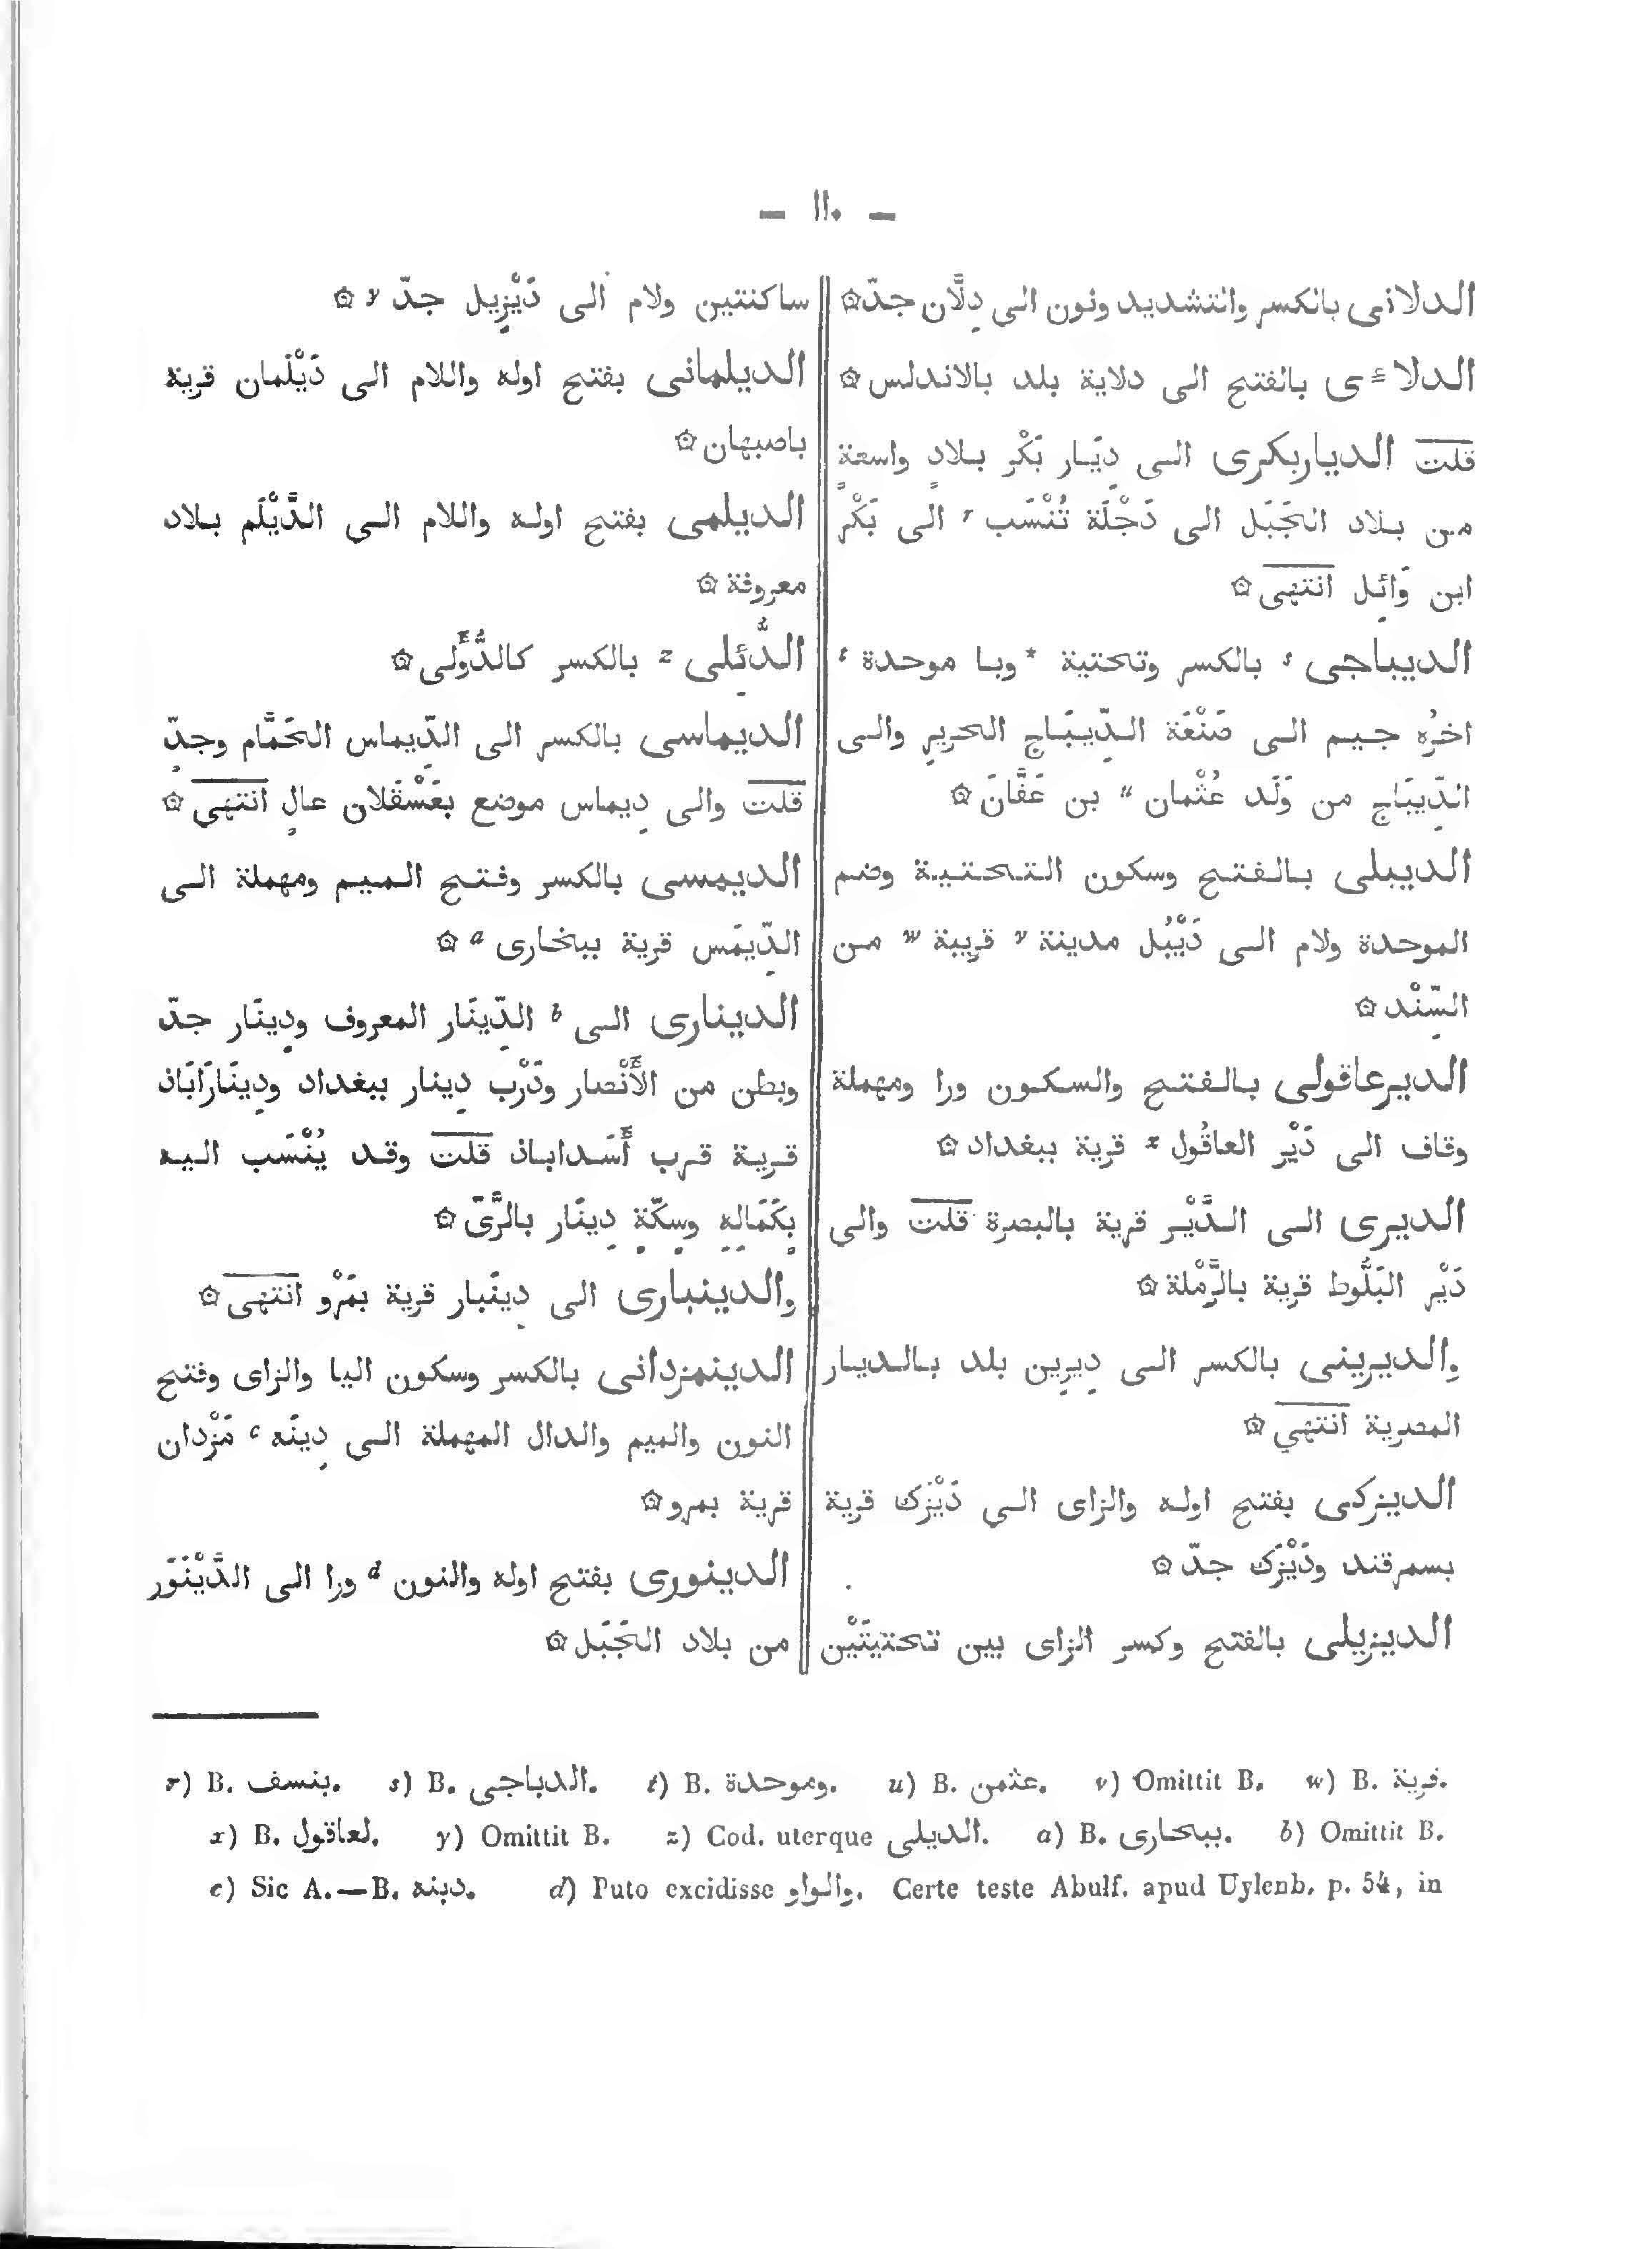 — ١١٠ —
الدلانى بالكسر والتشديد ونون الى دِلَّان جدّ ۞
الدلاءى بالفتح الى دلاية بلد بالاندلس ۞
قلت الدياربكرى الى دِيَار بَكْر بلادٍ واسعةٍ
من بلاد الجَبَل الى دَجْلَة تُنْسَب r الى بَكْر
ابن وَائِل انتهى ۞
الديباجى s بالكسر وتحتية * وبا موحدة t
اخرُه جيم الى صَنْعَة الدِّيبَاج الحرير والى
الدِّيبَاج من وَلَد عُثْمان u بن عَفَّانَ ۞
الديبلى بالفتح وسكون التحتية وضم
الموحدة ولام الى دَيْبُل مدينة v قريبة w من
السِّنْد ۞
الديرعاقولى بالفتح والسكون ورا ومهملة
وقاف الى دَيْر العاقُول x قرية ببغداد ۞
الديرى الى الدَّيْر قرية بالبصرة قلت والى
دَيْر البَلُّوط قرية بالرَّمْلة ۞
والديرينى بالكسر الى دِيرِين بلد بالديار
المصرية انتهى ۞
الديزكى بفتح اوله والزاى الى دَيْزَك قرية
بسمرقند ودَيْزَك جدّ ۞
الديزيلى بالفتح وكسر الزاى بين تحتيتَيْن
ساكنتين ولام الى دَيْزِيل جدّ y ۞
الديلمانى بفتح اوله واللام الى دَيْلَمان قرية
باصبهان ۞
الديلمى بفتح اوله واللام الى الدَّيْلَم بلاد
معروفة ۞
الدُّئِلى z بالكسر كالدُّؤَلى ۞
الديماسى بالكسر الى الدِّيماس الحَمَّام وجدٍّ
قلت والى دِيماس موضع بعَسْقَلان عالٍ انتهى ۞
الديمسى بالكسر وفتح الميم ومهملة الى
الدِّيمَس قرية ببخارى a ۞
الدينارى الى b الدِّينَار المعروف ودِينَار جدّ
وبطن من الأَنْصار ودَرْب دِينار ببغداد ودِينَارَابَاذ
قرية قرب أَسَداباذ قلت وقد يُنْسَب اليه
بِكَمَالِهِ وسِكّةِ دِينَار بالرَّىّ ۞
والدينبارى الى دِينَبار قرية بمَرْو انتهى ۞
الدينمزدانى بالكسر وسكون اليا والزاى وفتح
النون والميم والدال المهملة الى دِينَه c مَزْدان
قرية بمرو ۞
الدينورى بفتح اوله والنون d ورا الى الدَّيْنَوَر
من بلاد الجَبَل ۞
r) B. بنسف. s) B. الدباجى. t) B. وموحدة. u) B. عثمن. v) Omittit B. w) B. قرية.
x) B. لعاقول. y) Omittit B. z) Cod. uterque الديلى. a) B. ببحارى. b) Omittit B.
c) Sic A.—B. دبنه. d) Puto excidisse والواو. Certe teste Abulf. apud Uylenb. p. 54, in